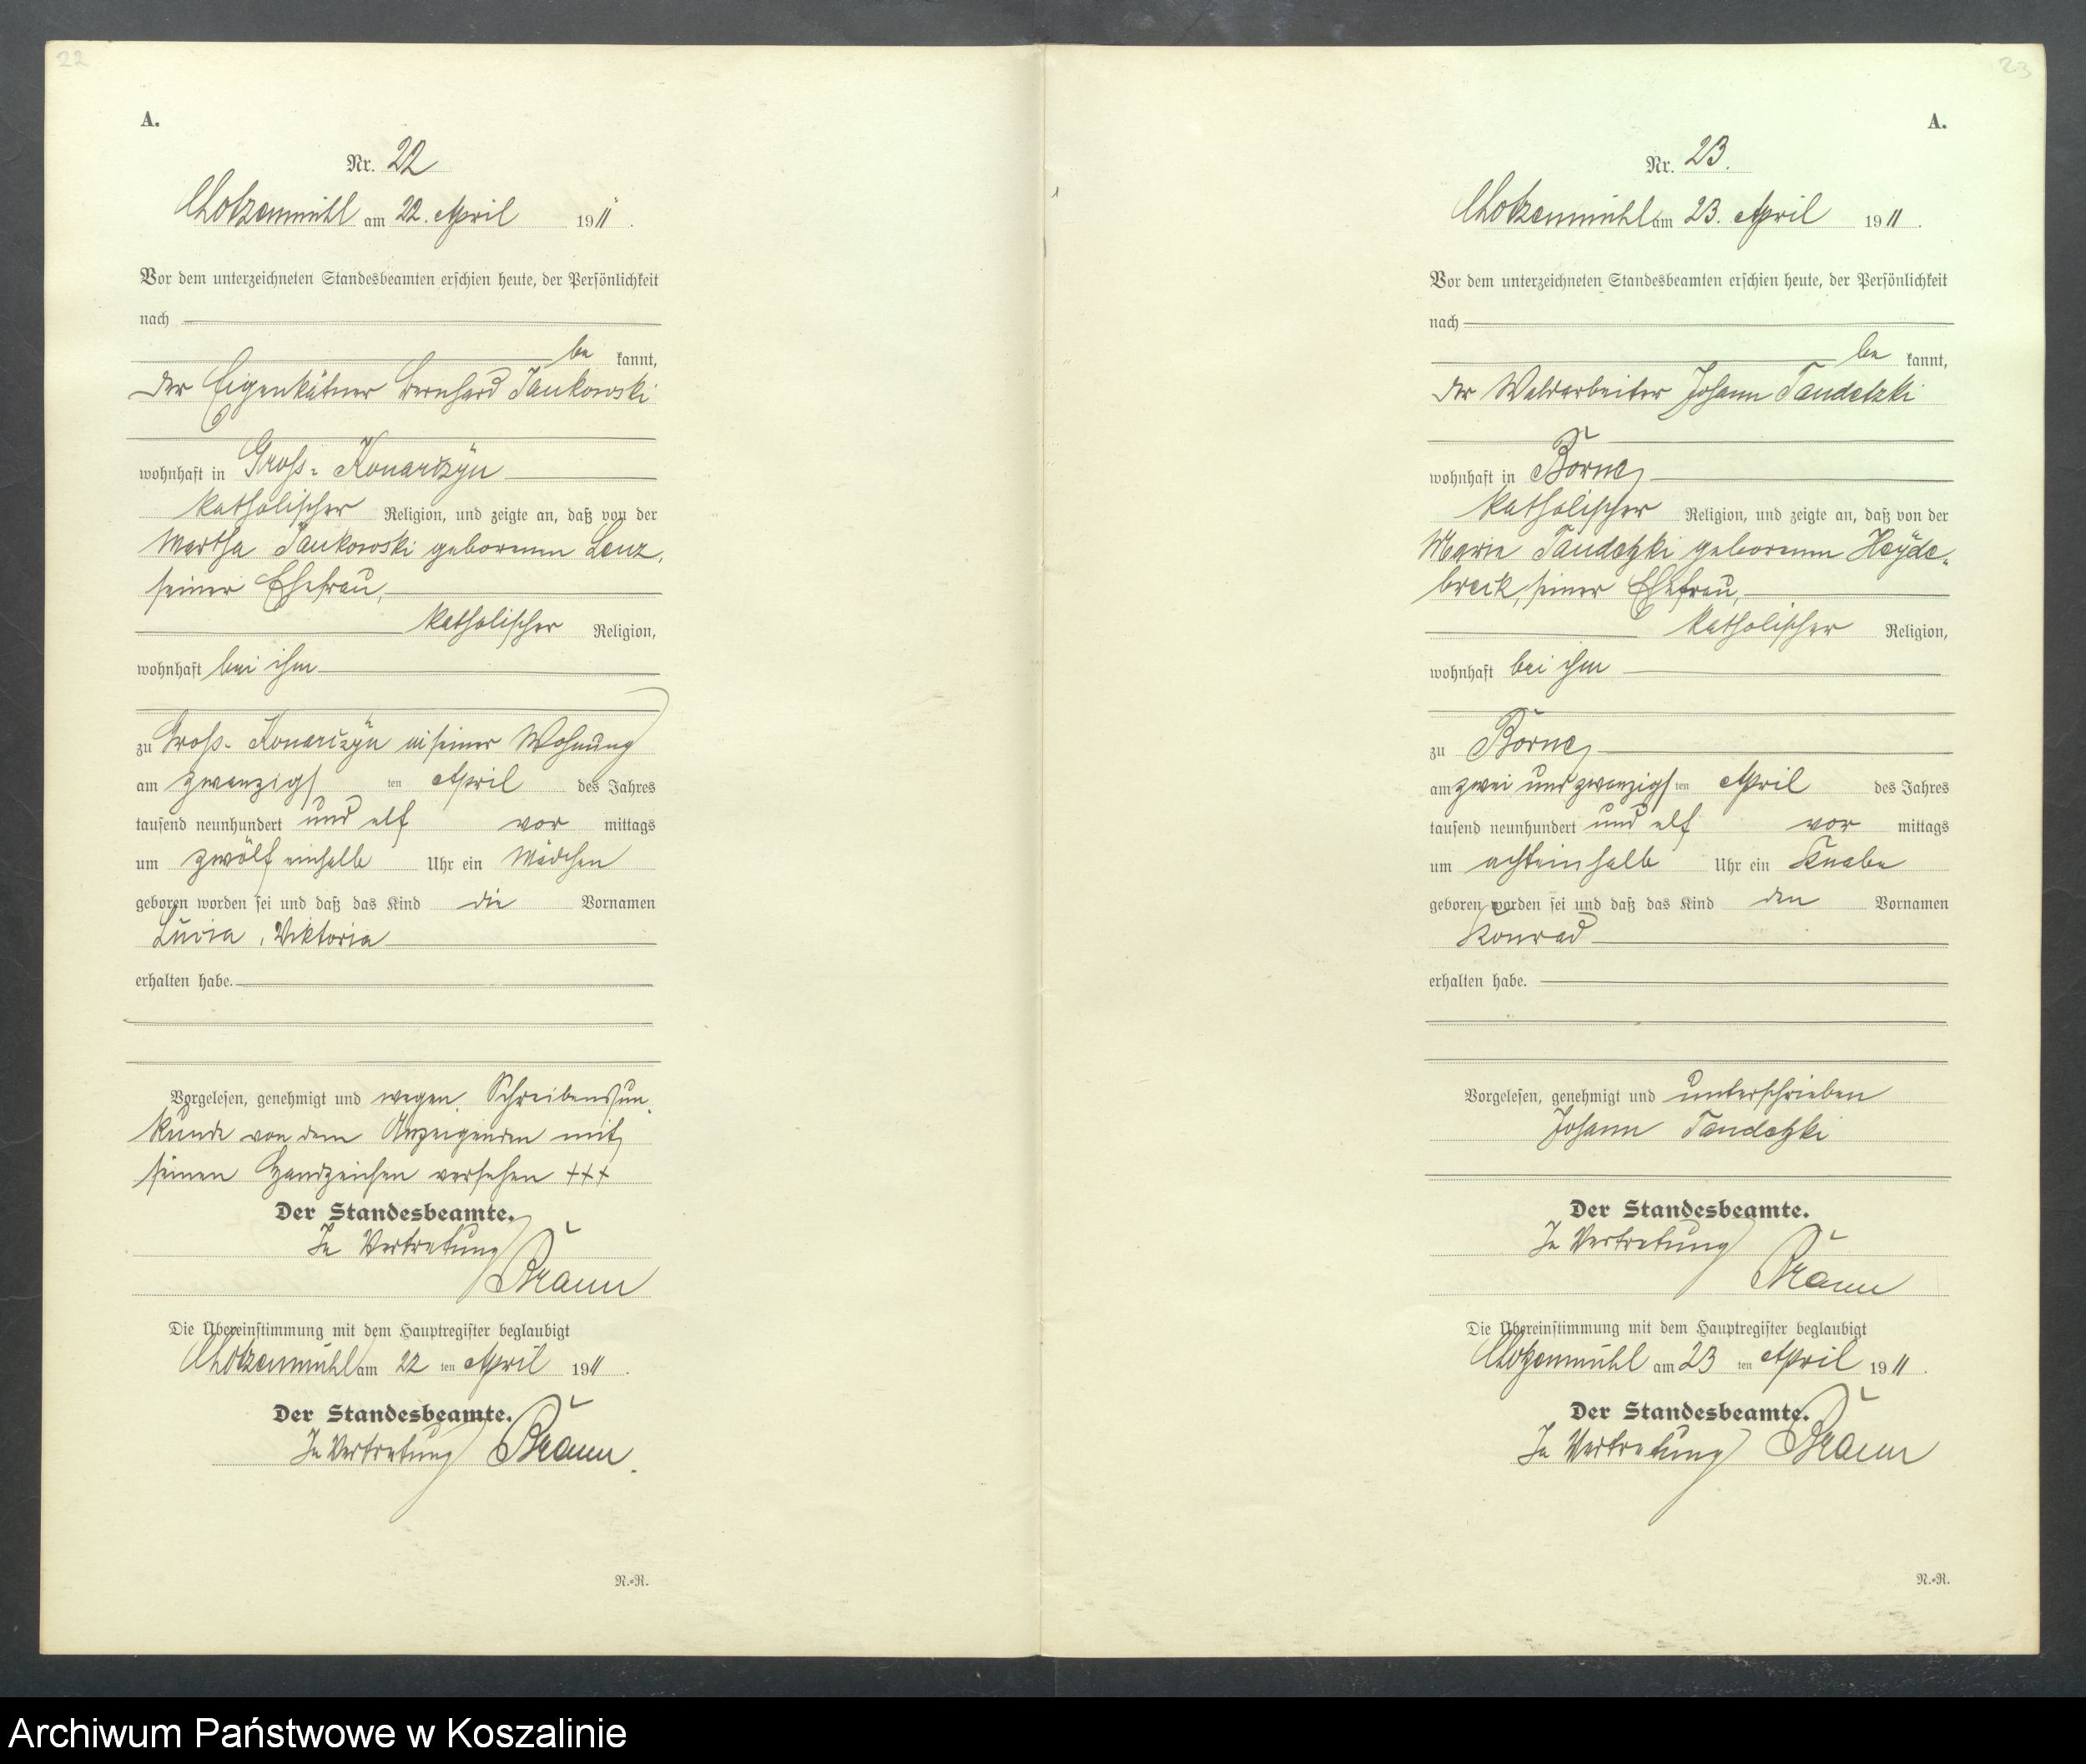 22
A.
Nr. 22
Chotzenmühl am 22. April 1911.
Vor dem unterzeichneten Standesbeamten erschien heute, der Persönlichkeit
nach
be kannt,
der Eigenkätner Bernhard Jankowski
wohnhaft in Gross-Konarczyn
katholischer Religion, und zeigte an, daß von der
Martha Jankowski geborenen Lenz,
seiner Ehefrau,
katholischer Religion,
wohnhaft bei ihm
zu Gross-Konarczyn in seiner Wohnung
am zwanzigsten April des Jahres
tausend neunhundert und elf vor mittags
um zwölf einhalb Uhr ein Mädchen
geboren worden sei und daß das Kind die Vornamen
Lucia, Viktoria
erhalten habe.
Vorgelesen, genehmigt und wegen Schreibensun-
kunde von dem Anzeigenden mit
seinen Handzeichen versehen +++
Der Standesbeamte.
In Vertretung
Braun
Die Übereinstimmung mit dem Hauptregister beglaubigt
Chotzenmühl am 22 ten April 1911.
Der Standesbeamte.
In Vertretung Braun.
N.=R.
23
A.
Nr. 23.
Chotzenmühl am 23. April 1911.
Vor dem unterzeichneten Standesbeamten erschien heute, der Persönlichkeit
nach
be kannt,
der Waldarbeiter Johann Tandetzki
wohnhaft in Borne,
katholischer Religion, und zeigte an, daß von der
Marie Tandetzki geborenen Heyde-
breck, seiner Ehefrau,
katholischer Religion,
wohnhaft bei ihm
zu Borne,
am zwei und zwanzigsten April des Jahres
tausend neunhundert und elf vor mittags
um achteinhalb Uhr ein Knabe
geboren worden sei und daß das Kind den Vornamen
Konrad
erhalten habe.
Vorgelesen, genehmigt und unterschrieben
Johann Tandetzki
Der Standesbeamte.
In Vertretung
Braun
Die Übereinstimmung mit dem Hauptregister beglaubigt
Chotzenmühl am 23 ten April 1911.
Der Standesbeamte.
In Vertretung Braun
N.=R.
Archiwum Państwowe w Koszalinie